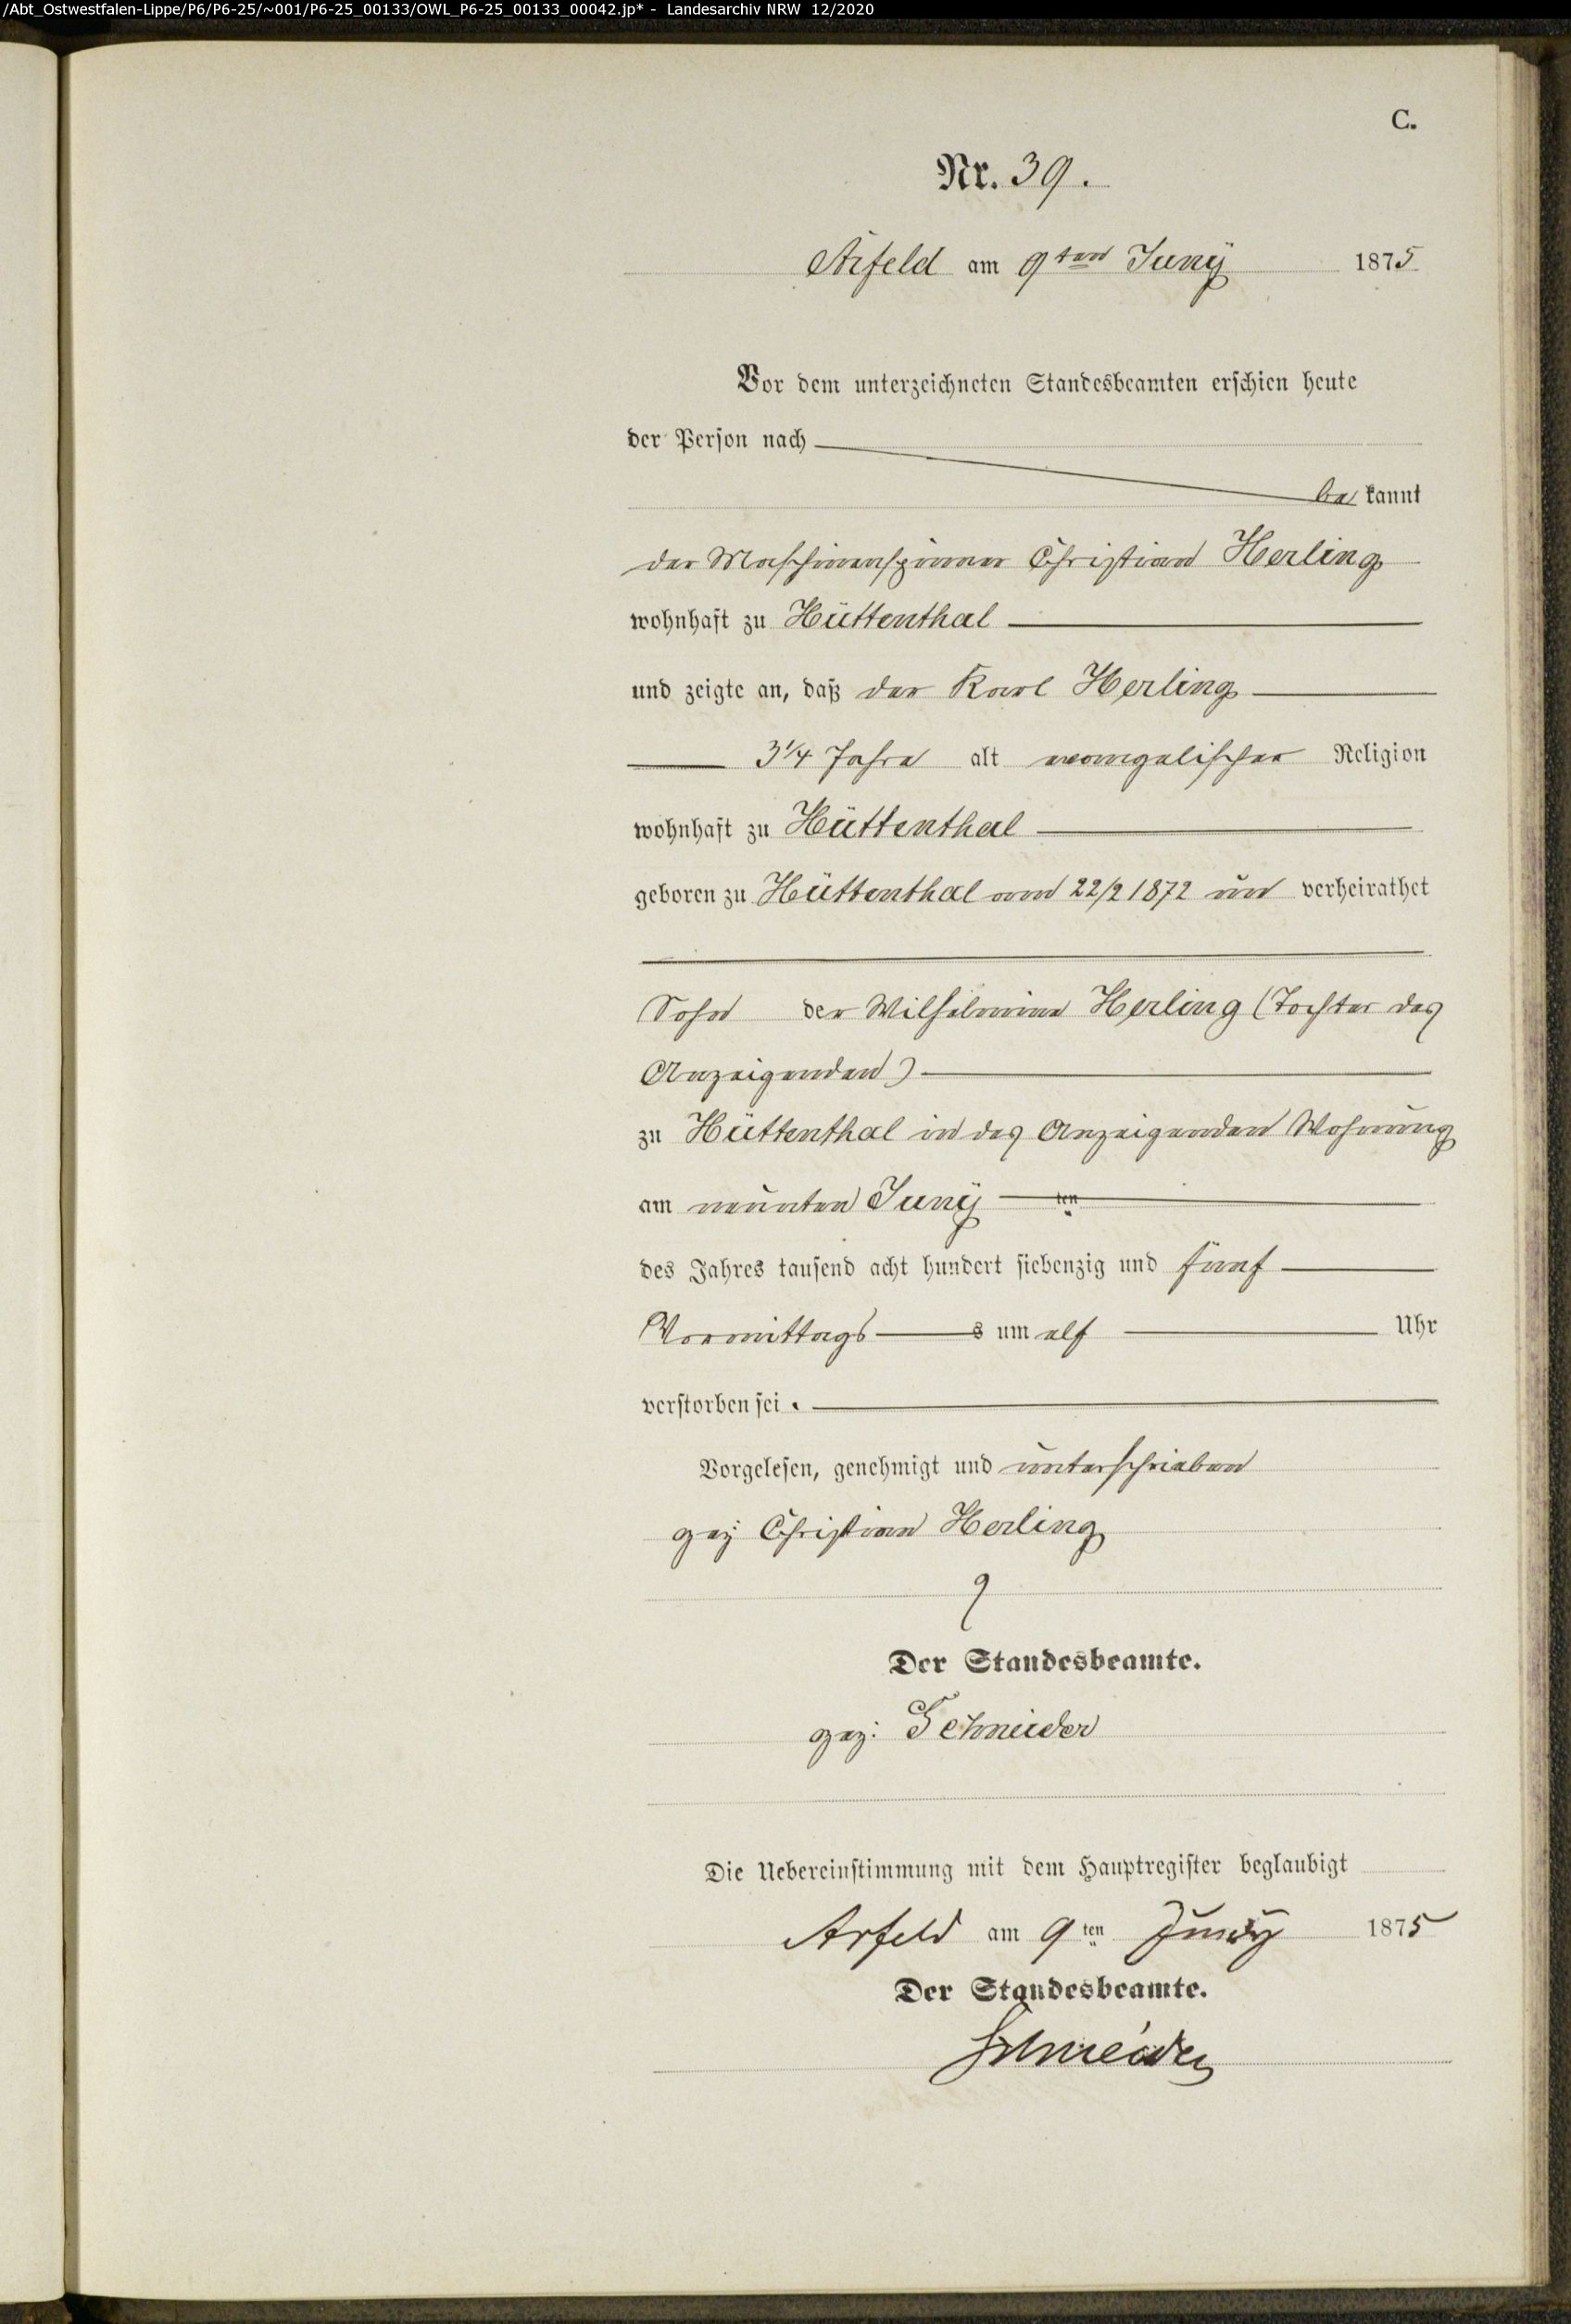 /Abt_Ostwestfalen-Lippe/P6/P6-25/~001/P6-25_00133/OWL_P6-25_00133_00042.jp* - Landesarchiv NRW 12/2020
C.
Nr. 39.
Arfeld am 9ten Juny 1875
Vor dem unterzeichneten Standesbeamten erschien heute
der Person nach
be kannt
der Maschinenspinner Christian Herling
wohnhaft zu Hüttenthal
und zeigte an, daß der Karl Herling
3 1/4 Jahre alt evangelischer Religion
wohnhaft zu Hüttenthal
geboren zu Hüttenthal am 22/2 1872 un verheirathet
Sohn der Wilhelmine Herling (Tochter des
Anzeigenden)
zu Hüttenthal in des Anzeigenden Wohnung
am neunten Juny ten
des Jahres tausend acht hundert siebenzig und fünf
Vormittags s um elf Uhr
verstorben sei.
Vorgelesen, genehmigt und unterschrieben
gez Christian Herling
Der Standesbeamte.
gez: Schneider
Die Uebereinstimmung mit dem Hauptregister beglaubigt
Arfeld am 9ten Juny 1875
Der Standesbeamte.
Schneider